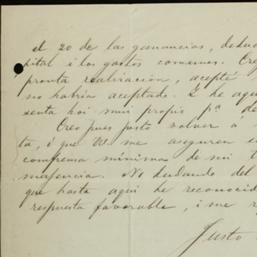 el 20 de las ganancias, deduc
pital i los gastos comunes. Cre
pronta realizacion, acepté
no habria aceptado. I he aqu
senta hoi mui propio pa. de
Creo pues justo volver a
ta, i que U. me aseguren e
compensa mínima de mi t
No dudando del
que hasta aqui he reconocid
respuesta favorable, i me r
Justo